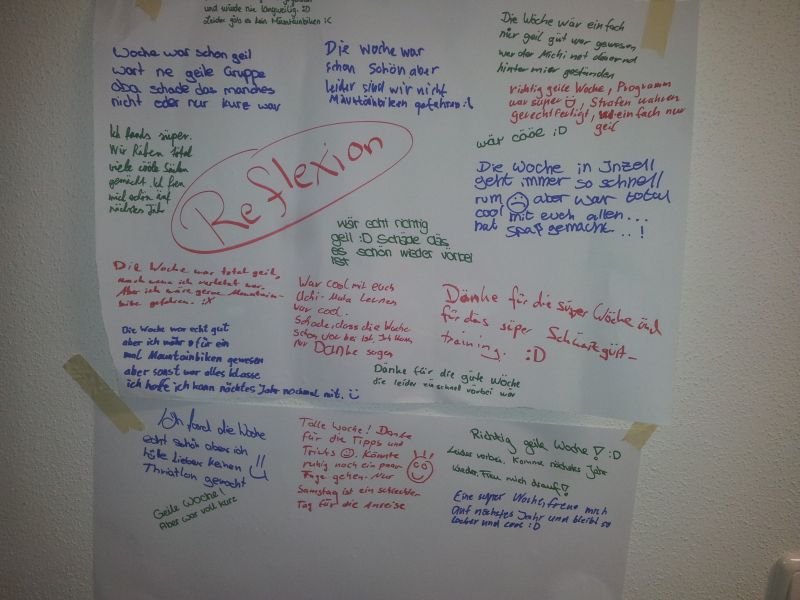 und würde nie langweilig. :D
Leider gab's es kein Mountainbiken :(
Woche war schon geil
wart ne geile Gruppe
Aba schade das manches
nicht oder nur kurz war
Die Woche war
schon schön aber
leider sind wir nicht
Mountainbiken gefahren :(
Die Woche wär einfach
nur geil gut war gewesen
wer der Michi net dauernd
hinter mir gestanden
wär cööl ;D
richtig geile Woche, Programm
war super ☺, Strafen wahren
gerechtfertigt, einfach nur
geil
Ich fands super.
Wir haben total
viele coole Sachen
gemacht. Ich freu
mich schon auf
nächstes Jahr
Reflexion
Die Woche in Inzell
geht immer so schnell
rum ☹ aber war total
cool mit euch allen...
hat spaß gemacht..!
wär echt richtig
geil :D Schade das
es schön wieder vorbei
ist
Die Woche war total geil,
auch wenn ich verletzt war.
Aber ich wäre gerne Mountain-
bike gefahren. :X
War cool mit euch
Uchi-Mata lernen
war cool.
Schade, dass die Woche
schon vor bei ist, Ich kann
nur Danke sagen
Danke für die süper Wöche und
für das süper Schwarzgürt-
training. :D
Die Woche war echt gut
aber ich währ für ein
mal Mountainbiken gewesen
aber sonst war alles klasse
ich hoffe ich kann nächtes Jahr nochmal mit. ☺
Danke für die gute Wöche
die leider so schnell vorbei war
Ich fand die Woche
echt schön aber ich
hätte lieber keinen
Thriatlon gemacht
Geile Woche!
Aber war voll kurz
Tolle Woche! Danke
für die Tipps und
Tricks ☺. Könnte
ruhig noch ein paar
Tage gehen. Nur
Samstag ist ein schlechter
Tag für die Anreise
Richtig geile Woche! :D
Leider vorbei. Komme nächstes Jahr
wieder. Freu mich drauf!
Eine super Woche, freue mich
auf nächstes Jahr und bleibt so
locker und cool :D